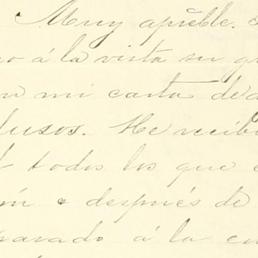 Muy apreble.
o á la vista su gr
on mi carta de
fusos. He recibi
todos los que e
ón o después de
parado á la en